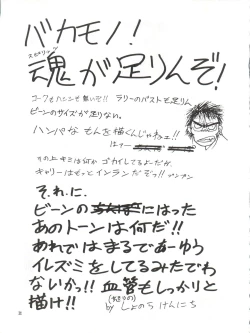 バカモノ!
スピリッツ
魂が足りんぞ!
コークもハーニーも無いぞ!! ラリーのバストも足りん
ビーンのサイズが足りない。
ハンパなもんを描くんじゃねェ!!
その上キミは何かゴカイしてるよーだが、
キャリーはもっとインランだぞっ!! プンプン
それに、
ビーンの にはった
あのトーンは何だ!!
あれではまるであーゆう
イレズミをしてるみたでわ
ないかっ!! 血管もしっかりと
描け!!
by しょのう けんいち